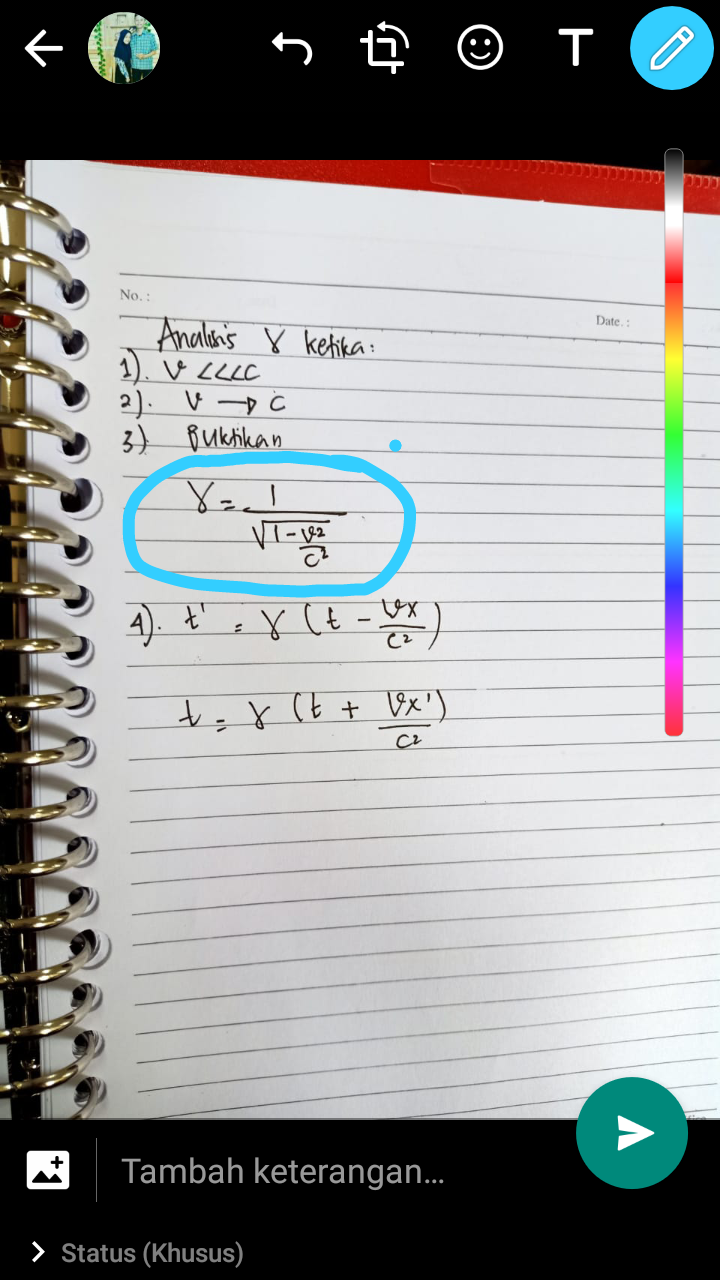 T
No. :
Date. :
Analisis γ ketika:
1). v <<<<c
2). v → c
3) Buktikan
γ = 1 / √1 - v² / c²
4). t' = γ (t - vx / c²)
t = γ (t + vx' / c²)
Tambah keterangan...
Status (Khusus)